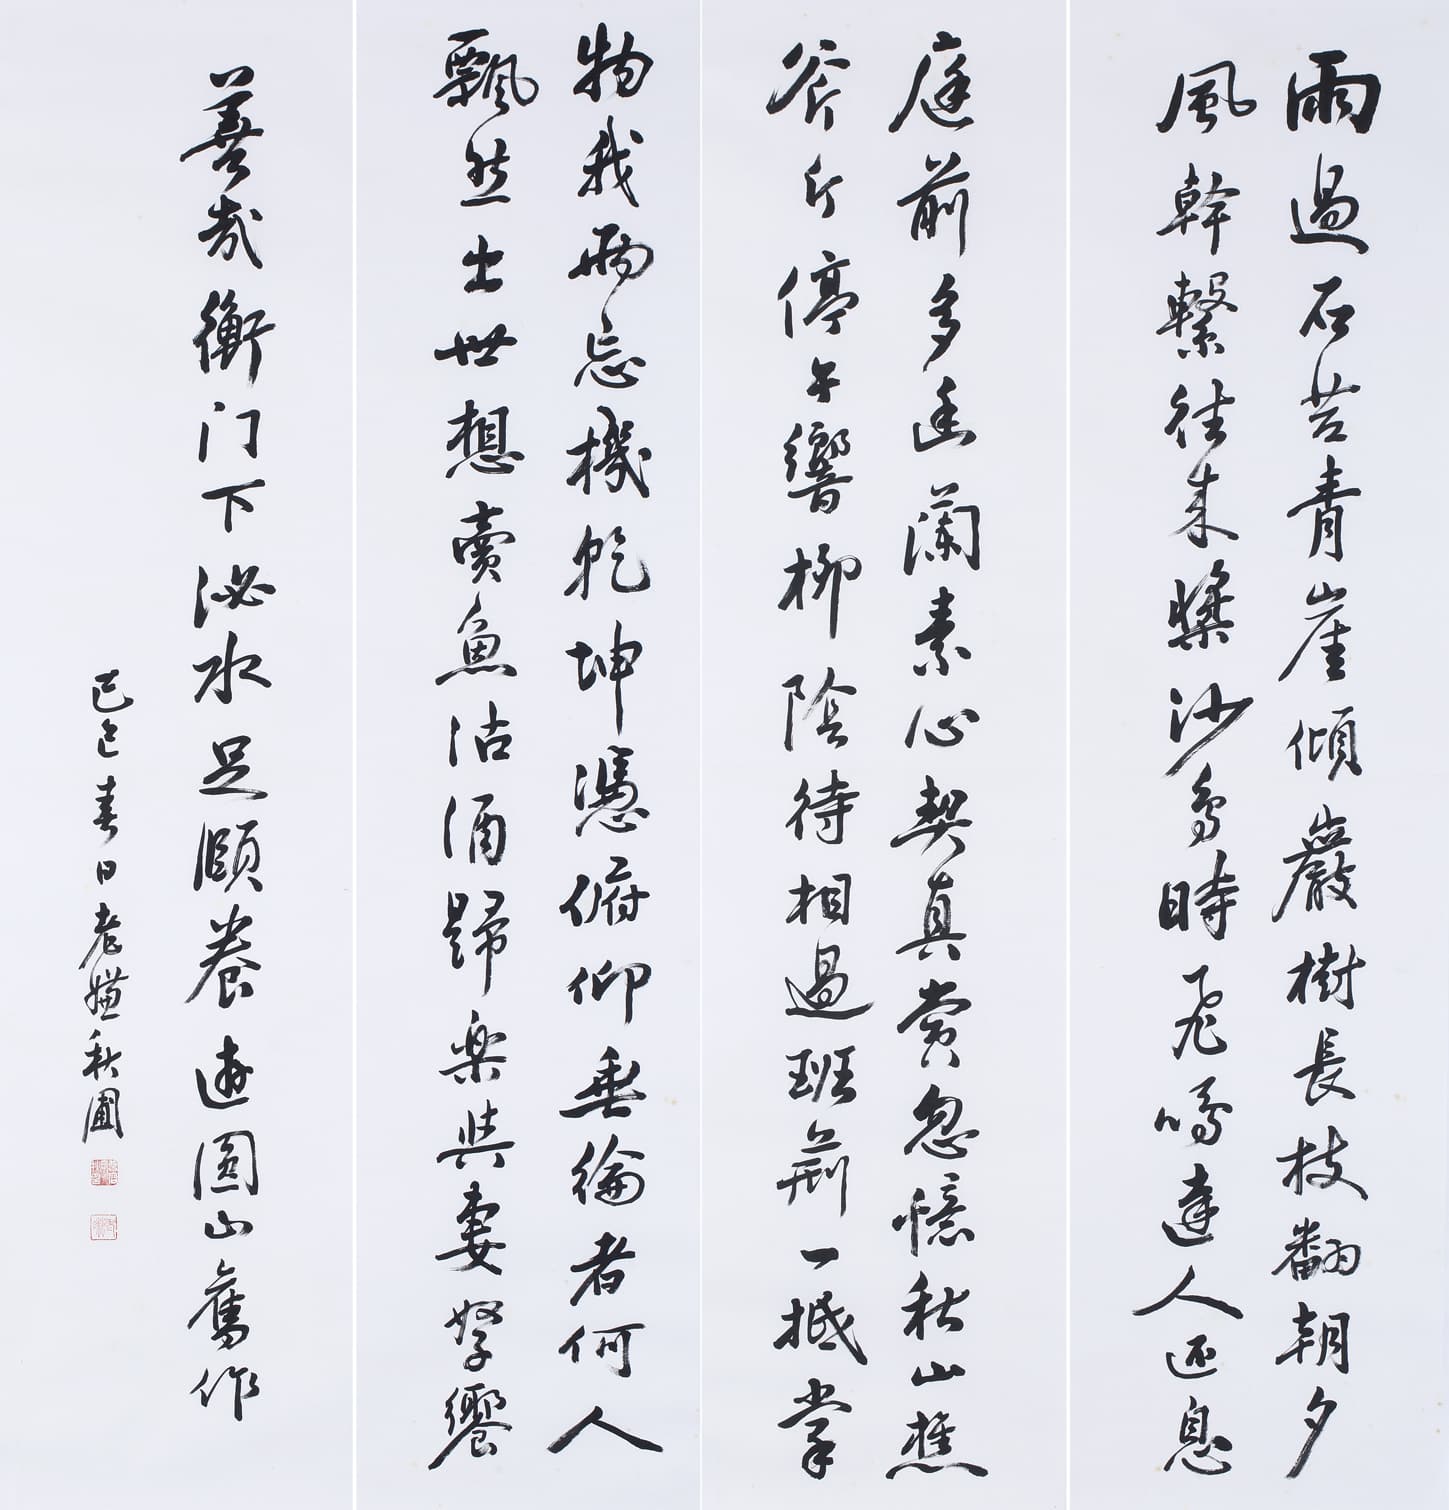 雨過石苔青崖傾巖樹長枝翻朝夕
風幹繫往來槳沙鳥時飛鳴達人還息
庭前多幽蘭素心契真賞忽憶秋山樵
斧斤停午響柳陰待相過班荊一抵掌
物我兩忘機乾坤憑俯仰垂綸者何人
飄然出世想賣魚沽酒歸楽與妻孥饗
善哉衡门下泌水足頤養遊圓山舊作
己巳春日老嫌秋圃